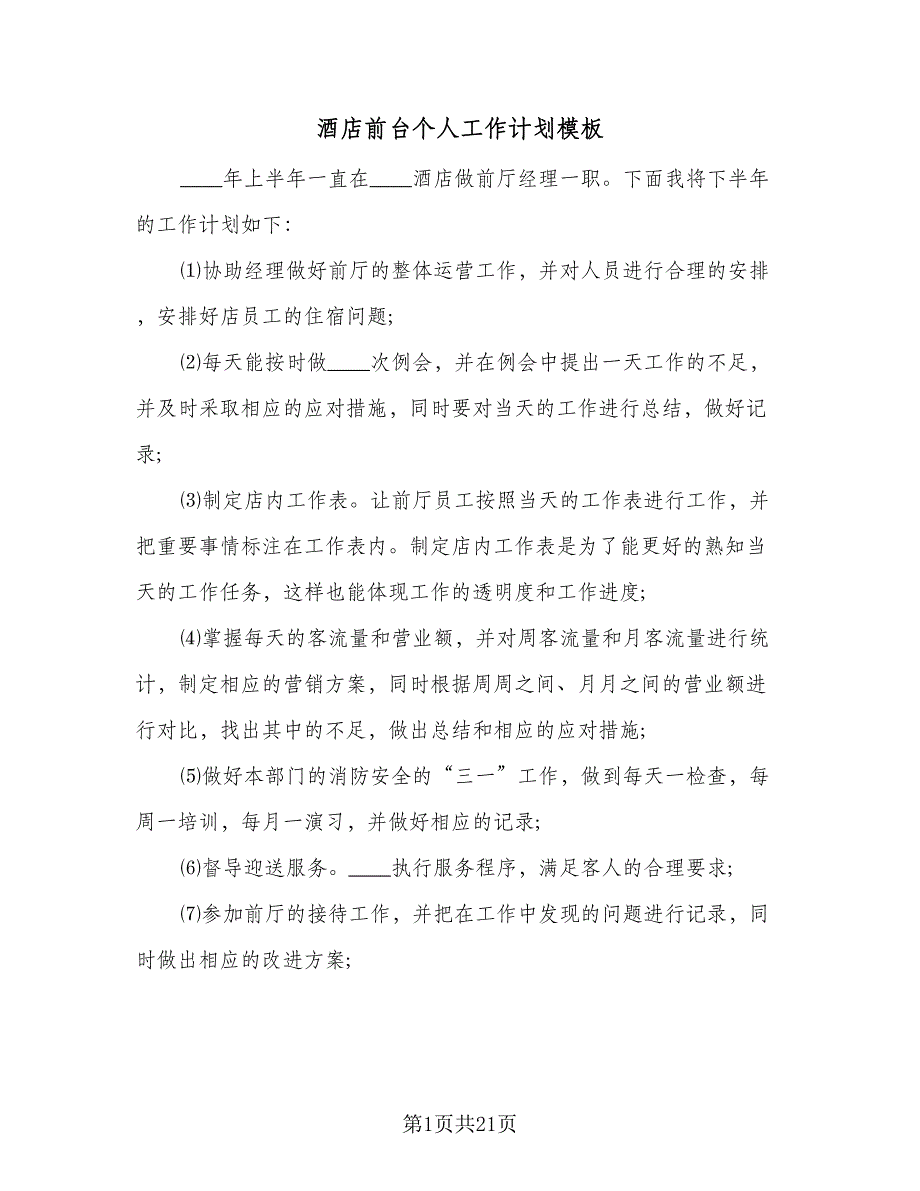 酒店前台个人工作计划模板
____年上半年一直在____酒店做前厅经理一职。下面我将下半年
的工作计划如下：
⑴协助经理做好前厅的整体运营工作，并对人员进行合理的安排
，安排好店员工的住宿问题;
⑵每天能按时做____次例会，并在例会中提出一天工作的不足，
并及时采取相应的应对措施，同时要对当天的工作进行总结，做好记
录;
⑶制定店内工作表。让前厅员工按照当天的工作表进行工作，并
把重要事情标注在工作表内。制定店内工作表是为了能更好的熟知当
天的工作任务，这样也能体现工作的透明度和工作进度;
⑷掌握每天的客流量和营业额，并对周客流量和月客流量进行统
计，制定相应的营销方案，同时根据周周之间、月月之间的营业额进
行对比，找出其中的不足，做出总结和相应的应对措施;
⑸做好本部门的消防安全的“三一”工作，做到每天一检查，每
周一培训，每月一演习，并做好相应的记录;
⑹督导迎送服务。____执行服务程序，满足客人的合理要求;
⑺参加前厅的接待工作，并把在工作中发现的问题进行记录，同
时做出相应的改进方案;
第1页共21页